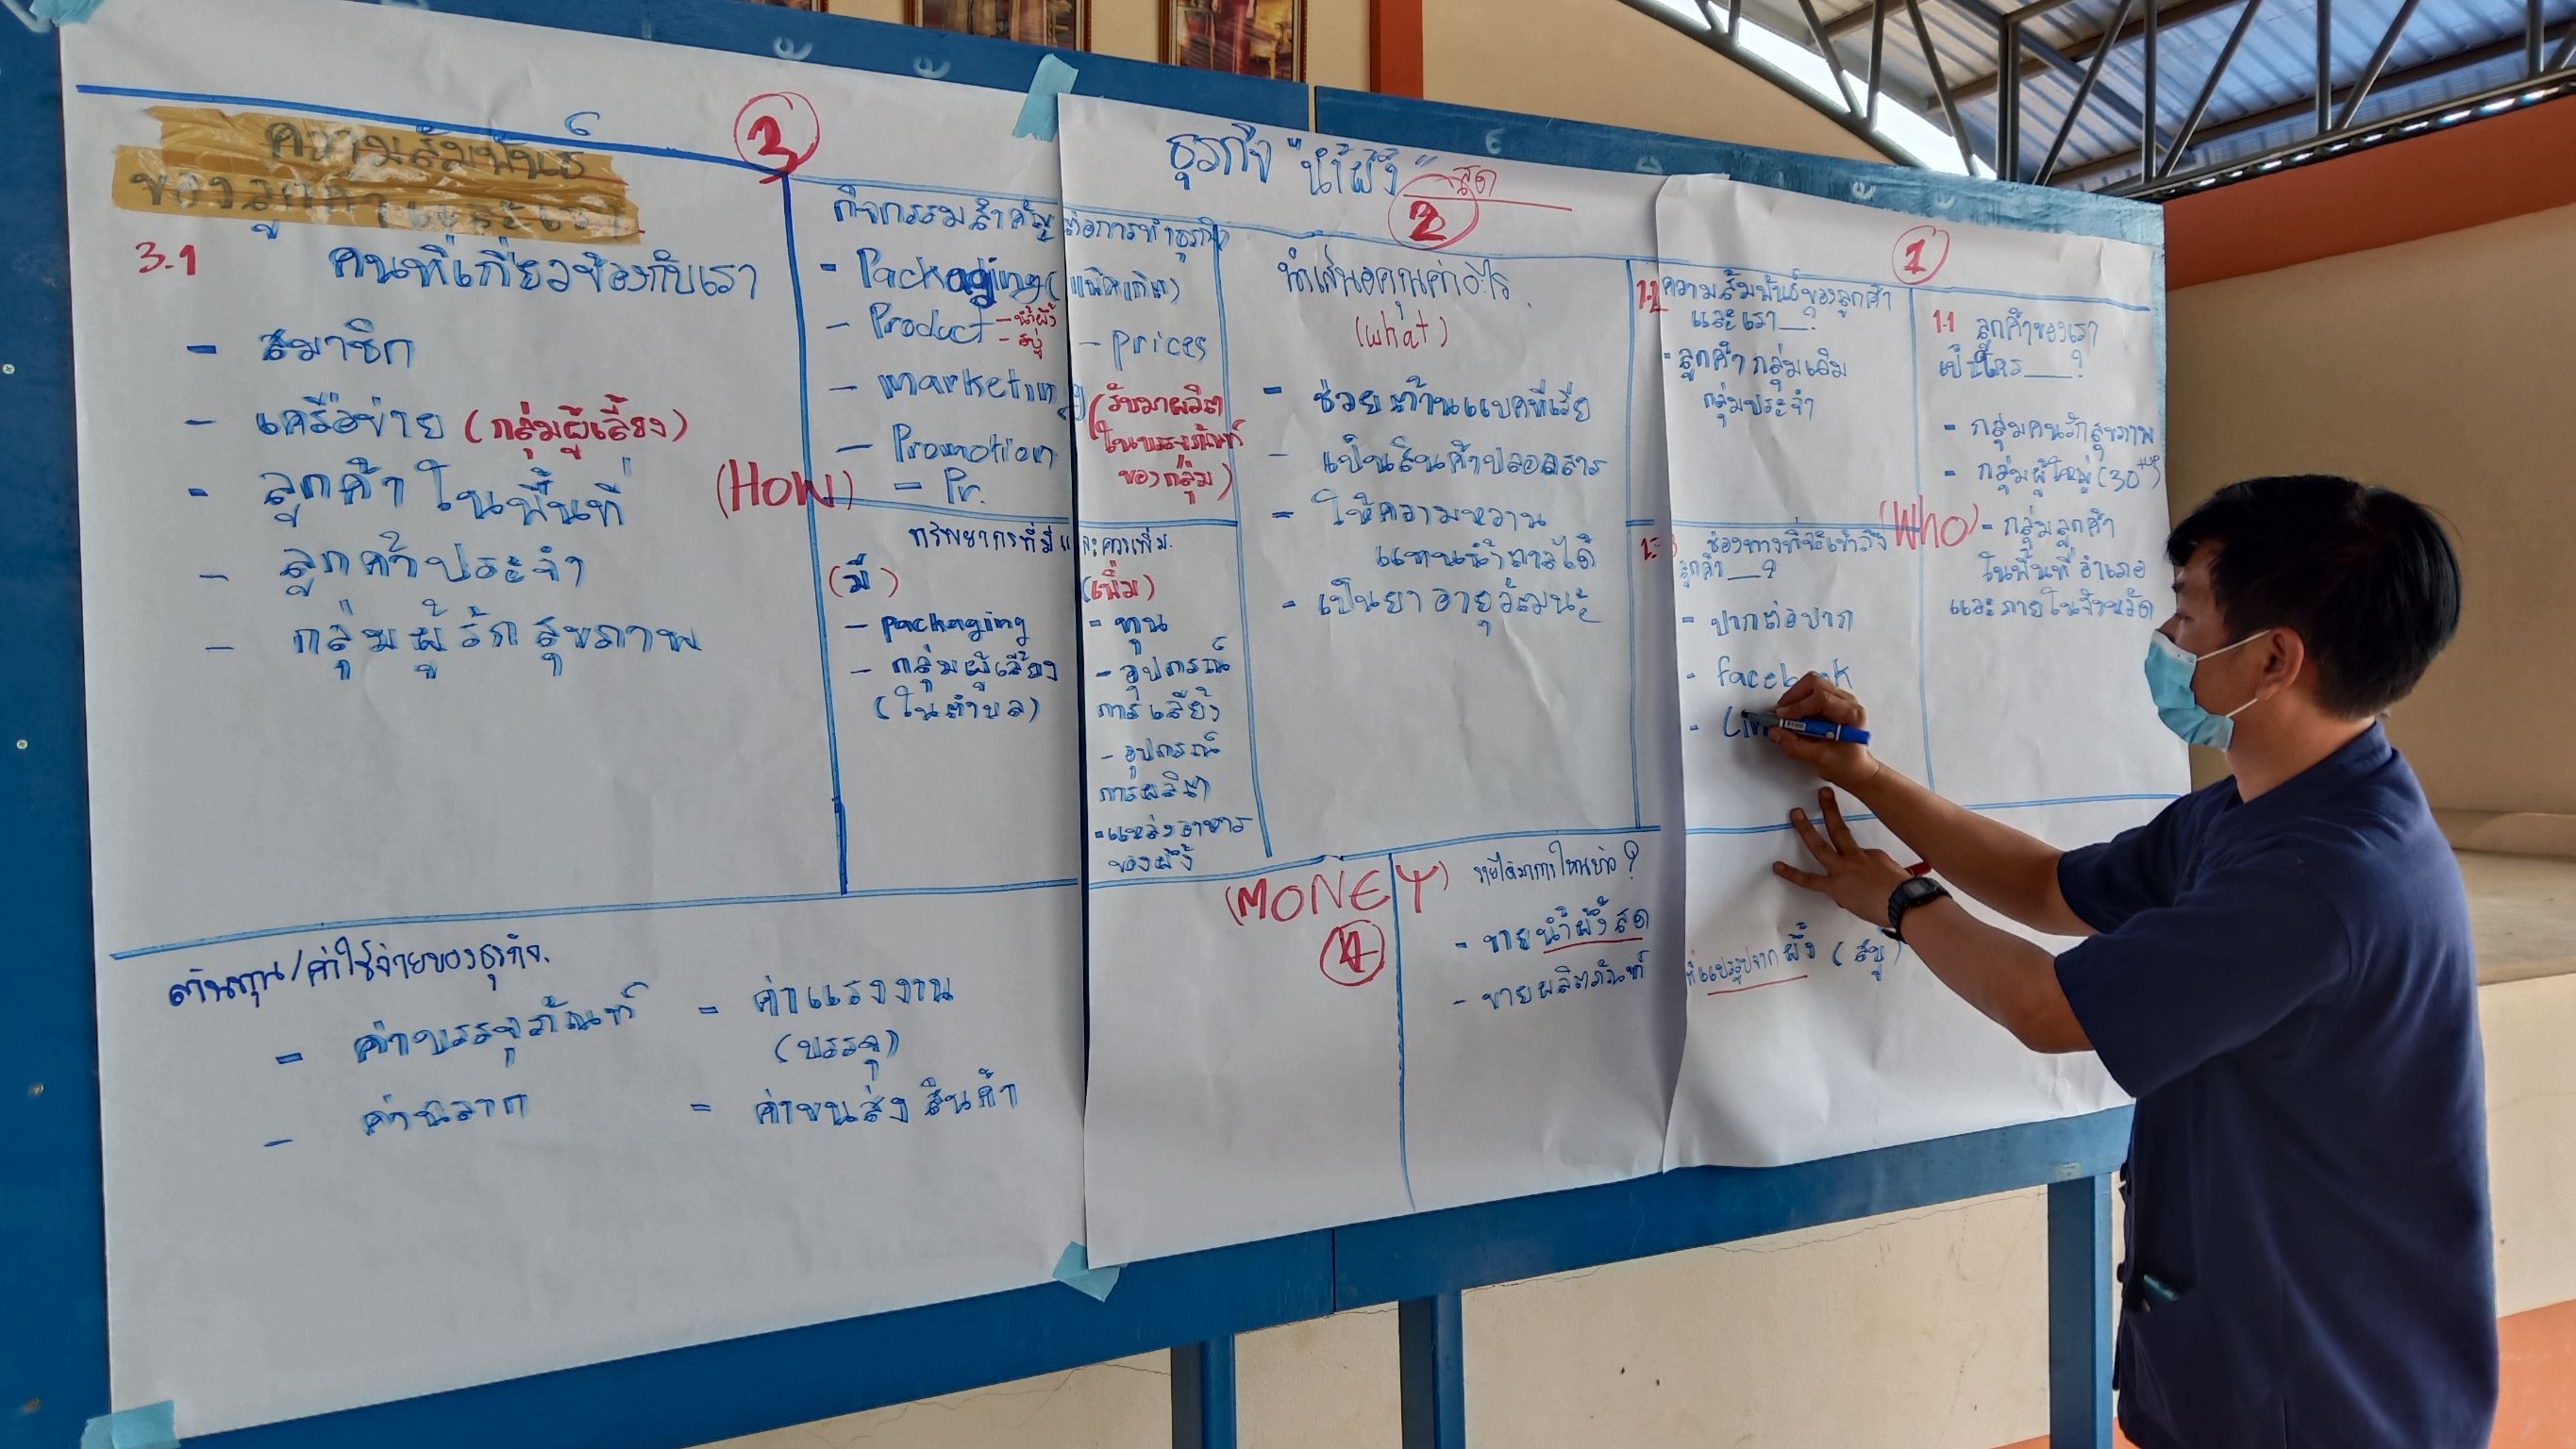 ธุรกิจ "น้ำผึ้ง" สด
3
ความสัมพันธ์
ของลูกค้าและเรา
3.1 คนที่เกี่ยวข้องกับเรา
- สมาชิก
- เครือข่าย (กลุ่มผู้เลี้ยง)
- ลูกค้าในพื้นที่
- ลูกค้าประจำ
- กลุ่มผู้รักสุขภาพ
(HOW)
กิจกรรมสำคัญต่อการทำธุรกิจ
- Packaging (แพ็คเกจ)
- Product - น้ำผึ้ง
- สบู่
- prices
- marketing
(รับมาผลิต
ในบรรจุภัณฑ์
ของกลุ่ม)
- Promotion
- Pr.
ทรัพยากรที่มีและควรเพิ่ม.
(มี)
- packaging
- กลุ่มผู้เลี้ยง
(ในตำบล)
(เพิ่ม)
- ทุน
- อุปกรณ์
การเลี้ยง
- อุปกรณ์
การผลิต
- แหล่งอาหาร
ของผึ้ง
2
นำเสนอคุณค่าอะไร
(what)
- ช่วยต้านแบคทีเรีย
- เป็นสินค้าปลอดสาร
- ให้ความหวาน
แทนน้ำตาลได้
- เป็นยาอายุวัฒนะ
1
1.2 ความสัมพันธ์ของลูกค้า
และเรา__?
- ลูกค้ากลุ่มเดิม
กลุ่มประจำ
ช่องทางที่จะเข้าถึง
ลูกค้า__?
- ปากต่อปาก
- facebook
(Who)
1.1 ลูกค้าของเรา
เป็นใคร__?
- กลุ่มคนรักสุขภาพ
- กลุ่มผู้ใหญ่ (30+up)
- กลุ่มลูกค้า
ในพื้นที่อำเภอ
และภายในจังหวัด
ต้นทุน/ค่าใช้จ่ายของธุรกิจ.
- ค่าบรรจุภัณฑ์
- ค่าฉลาก
- ค่าแรงงาน
(บรรจุ)
- ค่าขนส่งสินค้า
(MONEY)
4
รายได้มาจากไหนบ้าง?
- ขายน้ำผึ้งสด
- ขายผลิตภัณฑ์ที่แปรรูปจากผึ้ง (สบู่)